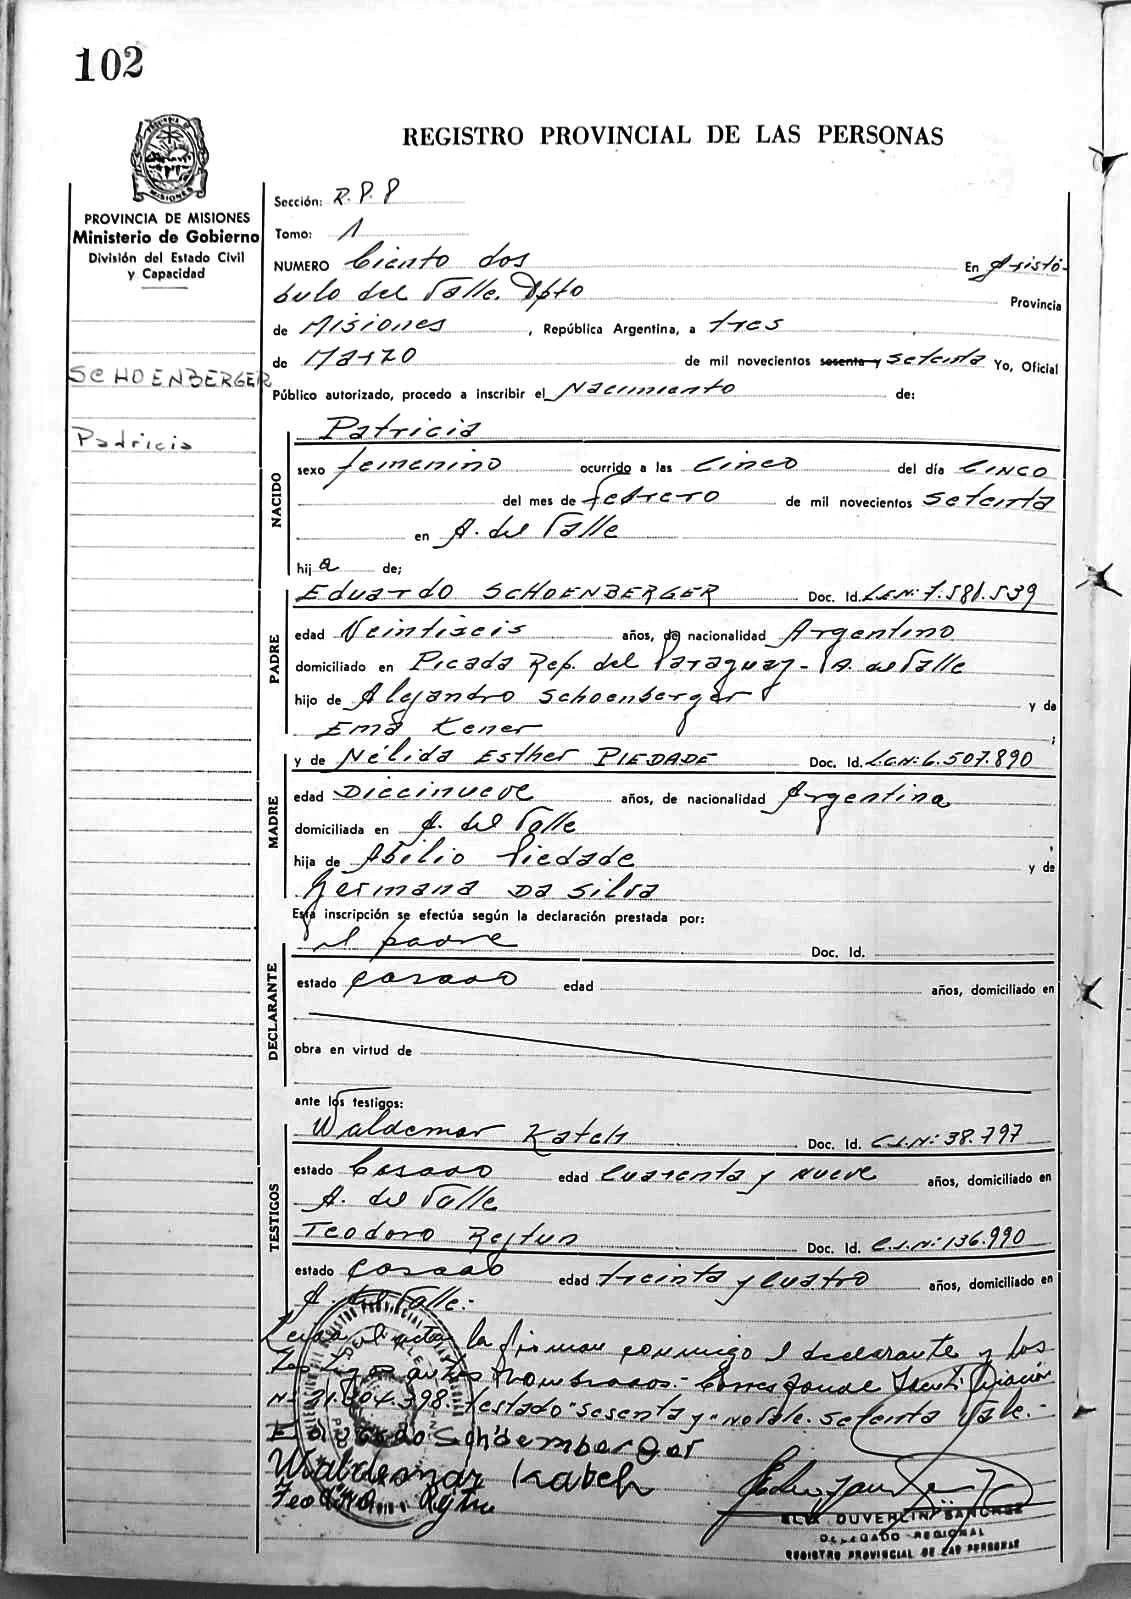 102
REGISTRO PROVINCIAL DE LAS PERSONAS
PROVINCIA DE MISIONES
Ministerio de Gobierno
División del Estado Civil
y Capacidad
SCHOENBERGER
Padricia
Sección: R.P.P
Tomo: 1
NUMERO Ciento dos En Aristó-
bulo del Valle. Dpto Provincia
de Misiones, República Argentina, a tres
de Marzo de mil novecientos sesenta y setenta Yo, Oficial
Público autorizado, procedo a inscribir el Nacimiento de:
NACIDO
Patricia
sexo femenino ocurrido a las Cinco del día CINCO
del mes de febrero de mil novecientos setenta
en A. del Valle
hija de;
PADRE
Eduardo SCHOENBERGER Doc. Id. L.E.Nº: 7.581.539
edad Veintiseis años, de nacionalidad Argentino
domiciliado en Picada Rep. del Paraguay - A. del Valle
hijo de Alejandro Schoenberger y de
Ema Kener ;
MADRE
y de Nélida Esther PIEDADE Doc. Id. L.C.Nº: 6.507.890
edad Diecinueve años, de nacionalidad Argentina
domiciliada en A. del Valle
hija de Abilio Piedade y de
Germana Da Silva
Esta inscripción se efectúa según la declaración prestada por:
DECLARANTE
el padre Doc. Id.
estado casado edad años, domiciliado en
obra en virtud de
ante los testigos:
TESTIGOS
Waldemar Katch Doc. Id. C.I.Nº: 38.797
estado Casado edad Cuarenta y nueve años, domiciliado en
A. del Valle
Teodoro Rejtun Doc. Id. C.I.Nº: 136.990
estado casado edad treinta y cuatro años, domiciliado en
A. del Valle:-
Leída el acta la firman conmigo el declarante y los
testigos antes nombrados.- Corresponde
Nº 21.304.398.- testado "sesenta y" no vale. setenta Vale.-
Eduardo Schoemberger
Waldemar Katch
Teodoro Rejtun
DUVERLIN SANCHEZ
DELEGADO REGIONAL
REGISTRO PROVINCIAL DE LAS PERSONAS